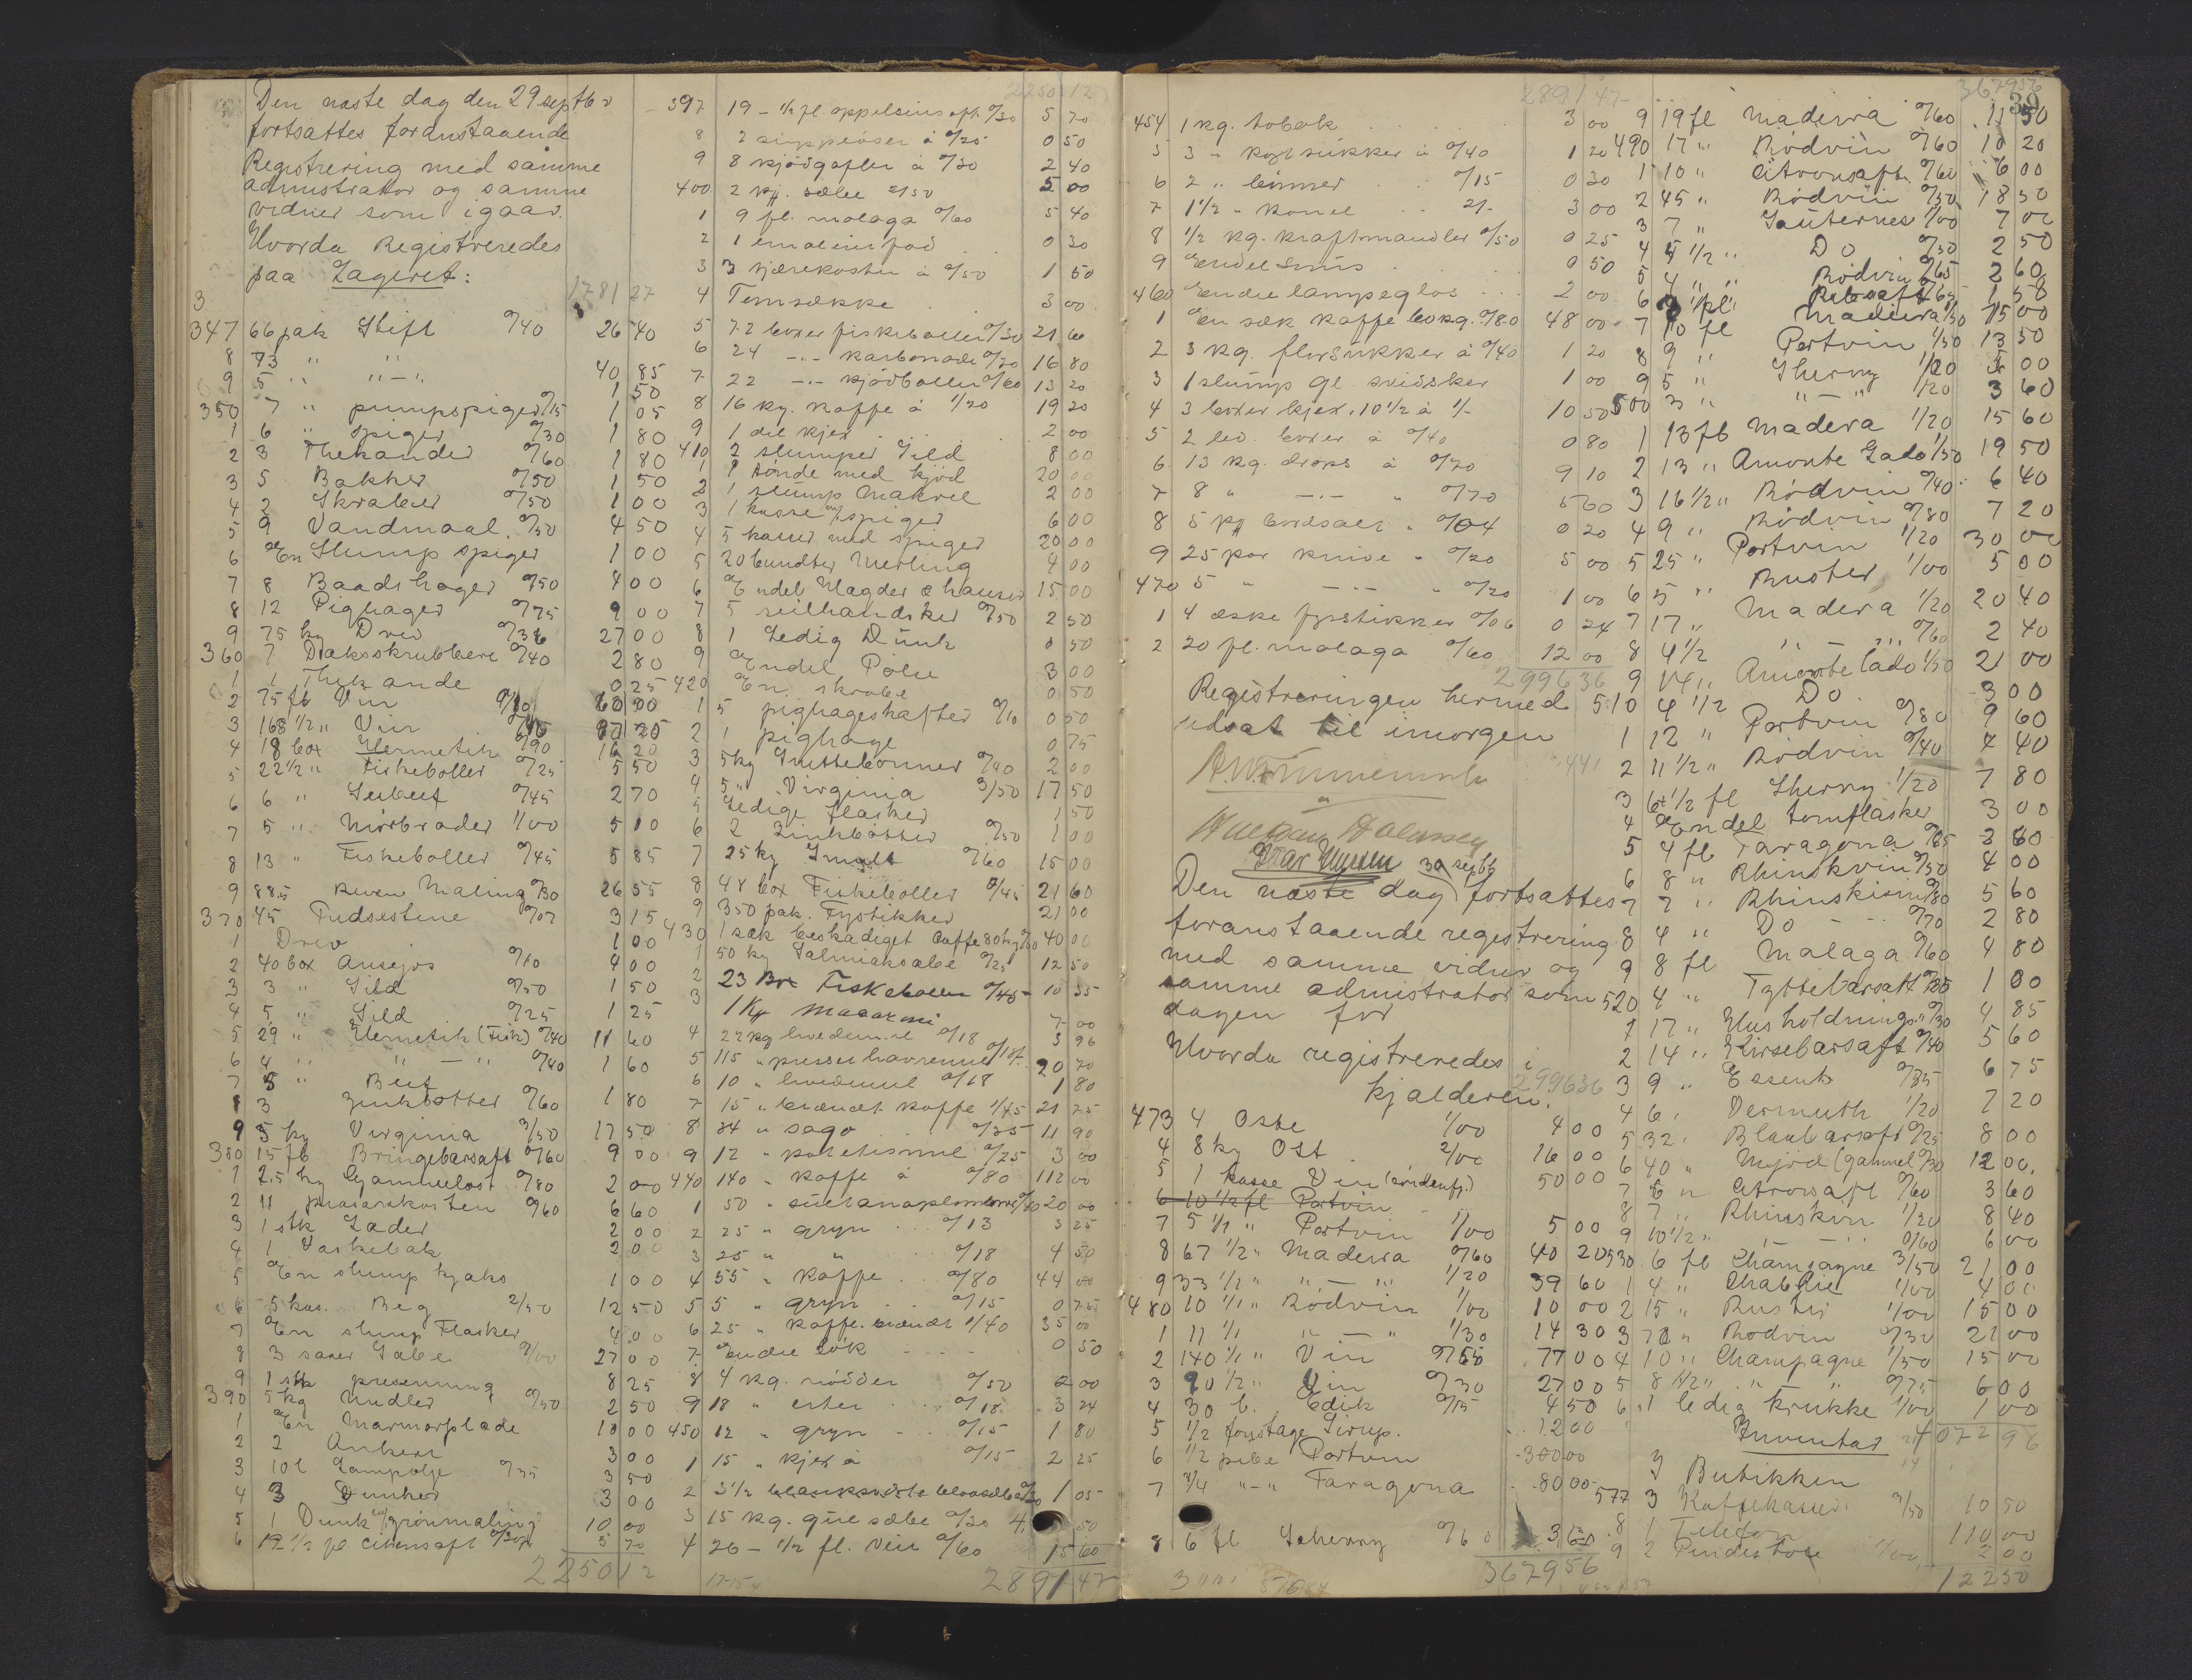 Den næste dag den 29 septbr
fortsattes foranstaaende
Registrering med samme
administrator og samme
vidner som igaar.
Hvorda Registreredes
paa Lageret:
1781 27
347 66 pak Stift 0/40 26 40
8 73 " " 40 85
9 5 " " - " 1 50
350 7 " pumpspiger 0/15 1 05
1 6 " spiger 0/30 1 80
2 3 Thekander 0/60 1 80
3 5 Bakker 0/50 1 50
4 2 Skraber 0/50 1 00
5 9 Vandmaal 0/50 4 50
6 En Slump spiger 1 00
7 8 Baadshager 0/50 4 00
8 12 Pighager 0/75 9 00
9 75 kg Drev 0/36 27 00
360 7 Dæksskrubbere 0/40 2 80
1 1 Thekande 0 25
2 75 fl Vin 0/80 60 00
3 168 1/2 " Vin
4 18 box Hermetik 0/90 16 20
5 22 1/2 " Fiskeboller 0/25 5 50
6 6 " Seibeef 0/45 2 70
7 5 " Mørbrader 1/00 5 10
8 13 " Fiskeboller 0/45 5 85
9 88.5 Reven Maling 0/30 26 55
370 45 Pudsestene 0/07 3 15
1 Drev 1 00
2 40 box Ansejos 0/10 4 00
3 3 " Sild 0/50 1 50
4 5 " Sild 0/25 1 25
5 29 " Hermetik (Fisk) 0/40 11 60
6 4 " " - " 0/40 1 60
7 5 " Beef
8 3 Zinkbøtter 0/60 1 80
9 5 kg Virginia 3/50 17 50
380 15 fl Bringebærsaft 0/60 9 00
1 2.5 kg Gammelost 0/80 2 00
2 11 piasavakosten 0/60 6 60
3 1 stk Læder 2 00
4 1 Vaskebak 2 00
5 En slump kjæks 1 00
6 5 kas. Beg 2/50 12 50
7 En slump Flasker 4 00
8 3 sæker Sæbe 9/00 27 00
9 1 stk presenning 8 25
390 5 kg Nudler 0/50 2 50
1 En Marmorplade 10 00
2 2 Ankere 3 00
3 10 l Lampolje 0/35 3 50
4 3 Dunker 3 00
5 1 Dunk m/ grønmaling 10 00
6 19 1/2 fl. citronsaft 0/30 5 70
2250 12
2250 12
397 19 - 1/2 fl. appelsinsaft 0/30 5 70
8 2 suppeøser à 0/25 0 50
9 8 kjødgafler à 0/30 2 40
400 2 kg. sæbe 2/50 5 00
1 9 fl. malaga 0/60 5 40
2 1 emaleirfad 0 30
3 3 tjærekoster à 0/50 1 50
4 Tomsække 3 00
5 72 boxer fiskeboller 0/30 21 60
6 24 -"- karbonade 0/70 16 80
7 22 -"- kjødboller 0/60 13 20
8 16 kg. kaffe à 1/20 19 20
9 1 del kjex 2 00
410 2 slumper Sild 8 00
1 1 tønde med kjød 20 00
2 1 slump Makrel 2 00
3 1 kasse m/ spiger 6 00
4 5 kasser med spiger 20 00
5 20 bundter Merling 4 00
6 Endel Klæder & hauser 15 00
7 5 seilhandsker 0/50 2 50
8 1 Ledig Dunk 0 50
9 Endel Pølse 3 00
420 En skrabe 0 50
1 5 pighageskafter 0/10 0 50
2 1 pighage 0 75
3 5 kg Snittebønner 0/40 2 00
4 5 " Virginia 3/50 17 50
5 Ledige flasker 1 50
6 2 Zinkbøtter 0/50 1 00
7 25 kg Smult 0/60 15 00
8 48 box Fiskeboller 0/45 21 60
9 350 pak. Fystikker 21 00
430 1 sæk beskadiget Caffe 80 kg 0/50 40 00
1 50 kg Salmiaksæbe 0/25 12 50
2 23 Bx Fiskeboller 0/45 10 35
3 1 Kg Macaroni 7 00
4 22 kg hvedemel 0/18 3 96
5 115 " presset havremel 0/18 20 70
6 10 " hvedemel 0/18 1 80
7 15 " brændt kaffe 1/45 21 75
8 34 " sago 0/35 11 90
9 12 " potetesmel 0/25 3 00
440 140 " kaffe à 0/80 112 00
1 50 " sultanaplommer 0/40 20 00
2 25 " gryn 0/13 3 25
3 25 " " 0/18 4 50
4 55 " kaffe 0/80 44 00
5 5 " gryn 0/15 0 75
6 25 " kaffe. brændt 1/40 35 00
7 Endel løk 0 50
8 4 kg. nødder 0/50 2 00
9 18 " erter 0/18 3 24
450 12 " gryn 0/15 1 80
1 15 " kjex à 0/15 2 25
2 3 1/2 blanksværte 1 05
3 15 kg. gul sæbe 0/30 4 50
4 26 - 1/2 fl. Vin 0/60 15 60
2891 47
2891 47
454 1 kg. tobak 3 00
5 3 " kogesukker à 0/40 1 20
6 2 " bønner 0/15 0 30
7 1 1/2 " kanel 2/- 3 00
8 1/2 kg. kraftmandler 0/50 0 25
9 Endel snus 0 50
460 Endel lampeglas 2 00
1 En sæk kaffe 60 kg. 0/80 48 00
2 3 kg. florsukker à 0/40 1 20
3 1 slump gl. svidsker 1 00
4 3 boxer kjex. 10 1/2 à 1/- 10 50
5 2 led. boxer à 0/40 0 80
6 13 kg. drops à 0/70 9 10
7 8 " -"- " 0/70 5 60
8 5 kg bordsalt " 0/04 0 20
9 25 par knive " 0/20 5 00
470 5 " -"- " 0/20 1 00
1 4 æske fyrstikker 0/06 0 24
2 20 fl. malaga 0/60 12 00
2996 36
Registreringen hermed
udsat til imorgen
30 septb
Den næste dag fortsattes
foranstaaende registrering
med samme vidner og
samme admistrator som
dagen før
Hvorda registreredes i
kjælderen. 2996 36
473 4 Oste 1/00 4 00
4 8 kg Ost 2/00 16 00
5 1 kasse Vin (eiridenfj.) 50 00
6 10 1/2 fl Portvin
7 5 1/1 " Portvin 1/00 5 00
8 67 1/2 " Madeira 0/60 40 20
9 33 1/1 " " - " 1/20 39 60
480 10 1/1 " Rødvin 1/00 10 00
1 11 1/1 " - " 1/30 14 30
2 140 1/1 " Vin 0/55 77 00
3 90 1/2 " Vin 0/30 27 00
4 30 l. Edik 0/15 4 50
5 1/2 fustage Sirup. 12 00
6 1/2 pibe Portvin 300 00
7 3/4 " - " Taragona 80 00
8 6 fl Scherry 0/60 3 60
3679 56
3679 56
39
9 19 fl Madeira 0/60 11 50
490 17 " Rødvin 0/60 10 20
1 10 " Citronsaft 0/60 6 00
2 45 " Rødvin 0/50 18 50
3 7 " Sauternes 1/00 7 00
4 5 1/2 " Do 0/50 2 50
5 4 " Rødvin 0/65 2 60
6 Ribssaft 1 58
7 10 fl Madeira 1/50 15 00
8 9 " Portvin 1/50 13 50
9 5 " Sherry 1/00 5 00
500 3 " " - " 1/20 3 60
1 13 fl Madera 1/20 15 60
2 13 " Amonte Lado 1/50 19 50
3 16 1/2 " Rødvin 0/40 6 40
4 9 " Rødvin 0/80 7 20
5 25 " Portvin 1/20 30 00
6 5 " Ruster 1/00 5 00
7 17 " Madera 1/20 20 40
8 4 1/2 " - " 0/60 2 40
9 14 " Amonte lado 1/50 21 00
510 4 1/2 Do 3 00
1 12 " Portvin 0/80 9 60
2 11 1/2 " Rødvin 0/40 4 40
3 6 1/2 fl Sherry 1/20 7 80
4 Endel tomflasker 3 00
5 4 fl Taragona
6 8 " Rhinskvin 0/50 4 00
7 7 " Rhinskvin 0/80 5 60
8 4 " Do 0/70 2 80
9 8 fl Malaga 0/60 4 80
520 4 " Tyttebærsaft 1 00
1 17 " Husholdnings " 0/30 4 85
2 14 " Kirsebærsaft 0/40 5 60
3 9 " Essents 0/75 6 75
4 6 " Vermuth 1/20 7 20
5 32 " Blaabærsaft 0/25 8 00
6 40 " Mjød (gammel 0/30 12 00
7 6 " Citronsaft 0/60 3 60
8 7 " Rhinskvin 1/20 8 40
9 10 1/2 " - " 0/60 6 00
530 6 fl Champagne 3/50 21 00
1 4 " Chablie 1/00 4 00
2 15 " Ruster 1/00 15 00
3 70 " Rødvin 0/30 21 00
4 10 " Champagne 1/50 15 00
5 8 1/2 " " " 0/75 6 00
6 1 ledig krukke 1/00 1 00
4072 96
Inventar
I Butikken
577 3 Kaffekasser 3/50 10 50
8 1 Telefon 110 00
9 2 Pindestole 1/00 2 00
122 50